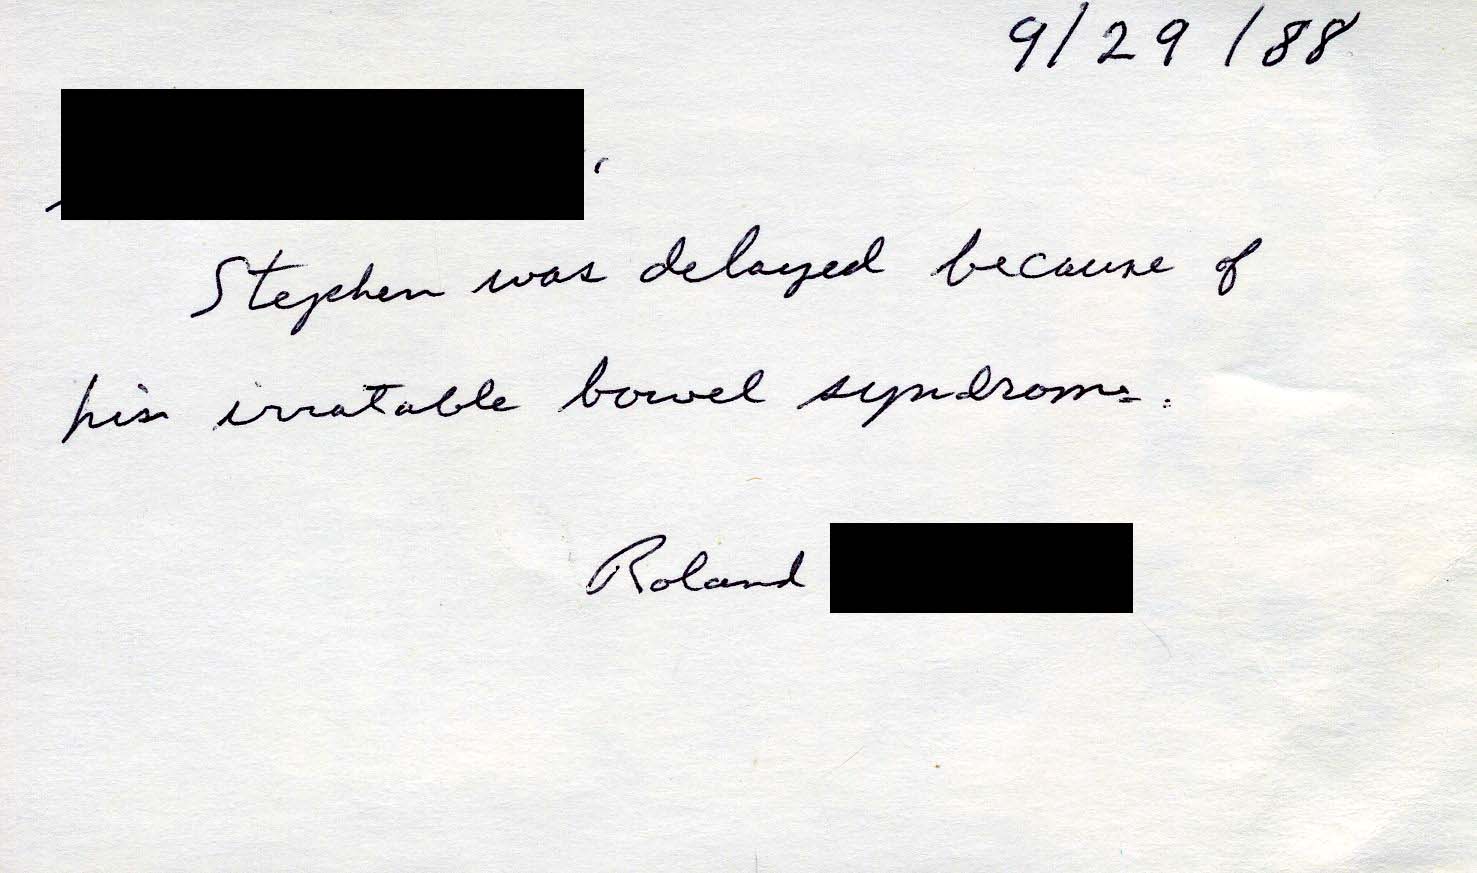 9/29/88
Stephen was delayed because of
his irratable bowel syndrome.
Roland